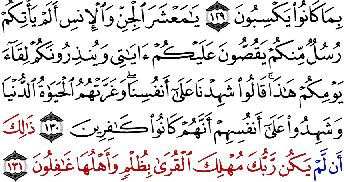 بِمَا كَانُوا۟ يَكْسِبُونَ ١٢٩ يَـٰمَعْشَرَ ٱلْجِنِّ وَٱلْإِنسِ أَلَمْ يَأْتِكُمْ
رُسُلٌ مِّنكُمْ يَقُصُّونَ عَلَيْكُمْ ءَايَـٰتِى وَيُنذِرُونَكُمْ لِقَآءَ
يَوْمِكُمْ هَـٰذَا ۚ قَالُوا۟ شَهِدْنَا عَلَىٰٓ أَنفُسِنَا ۖ وَغَرَّتْهُمُ ٱلْحَيَوٰةُ ٱلدُّنْيَا
وَشَهِدُوا۟ عَلَىٰٓ أَنفُسِهِمْ أَنَّهُمْ كَانُوا۟ كَـٰفِرِينَ ١٣٠ ذَٰلِكَ
أَن لَّمْ يَكُن رَّبُّكَ مُهْلِكَ ٱلْقُرَىٰ بِظُلْمٍ وَأَهْلُهَا غَـٰفِلُونَ ١٣١